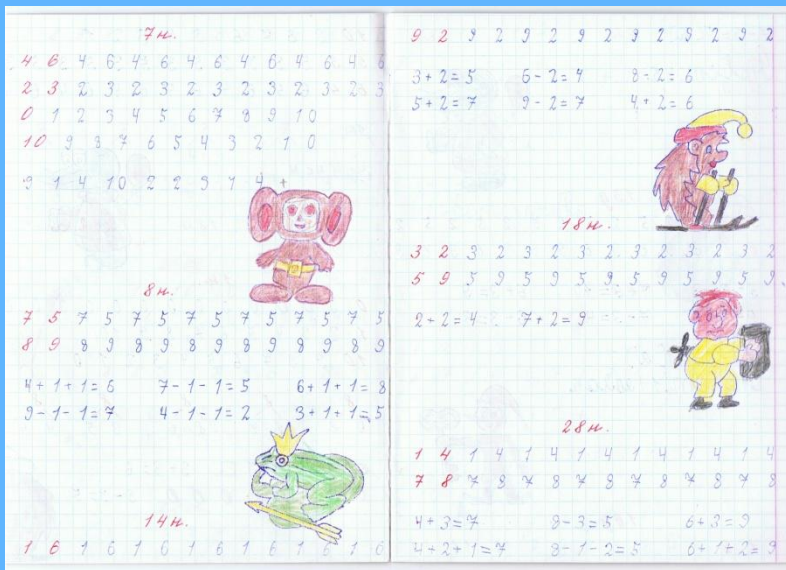 7н.
4 6 4 6 4 6 4 6 4 6 4 6 4 6 4 6
2 3 2 3 2 3 2 3 2 3 2 3 2 3
0 1 2 3 4 5 6 7 8 9 10
10 9 8 7 6 5 4 3 2 1 0
9 1 4 10 2 2 9 7 4 +
8н.
7 5 7 5 7 5 7 5 7 5 7 5 7 5
8 9 8 9 8 9 8 9 8 9 8 9 8 9
4+1+1=6 7-1-1=5 6+1+1=8
9-1-1=7 4-1-1=2 3+1+1=5
14н.
1 6 1 6 1 6 1 6 1 6 1 6 1 6
9 2 9 2 9 2 9 2 9 2 9 2 9 2
3+2=5 6-2=4 8-2=6
5+2=7 9-2=7 4+2=6
18н.
3 2 3 2 3 2 3 2 3 2 3 2 3 2
5 9 5 9 5 9 5 9 5 9 5 9 5 9
2+2=4 7+2=9
28н.
1 4 1 4 1 4 1 4 1 4 1 4 1 4
7 8 7 8 7 8 7 8 7 8 7 8 7 8
4+3=7 8-3=5 6+3=9
4+2+1=7 8-1-2=5 6+1+2=9